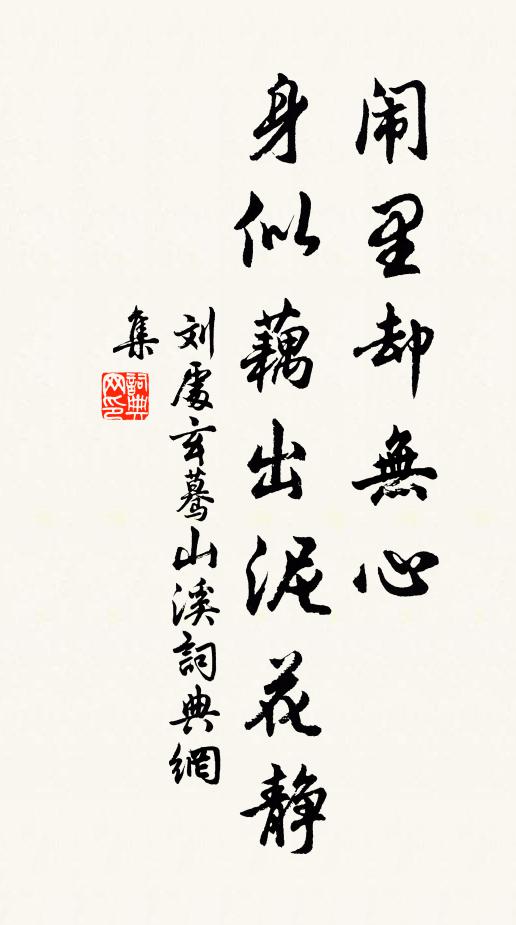 闹里却無心
身似藕出泥花静
刘處玄驀山溪詞典網
集
詞典
网印